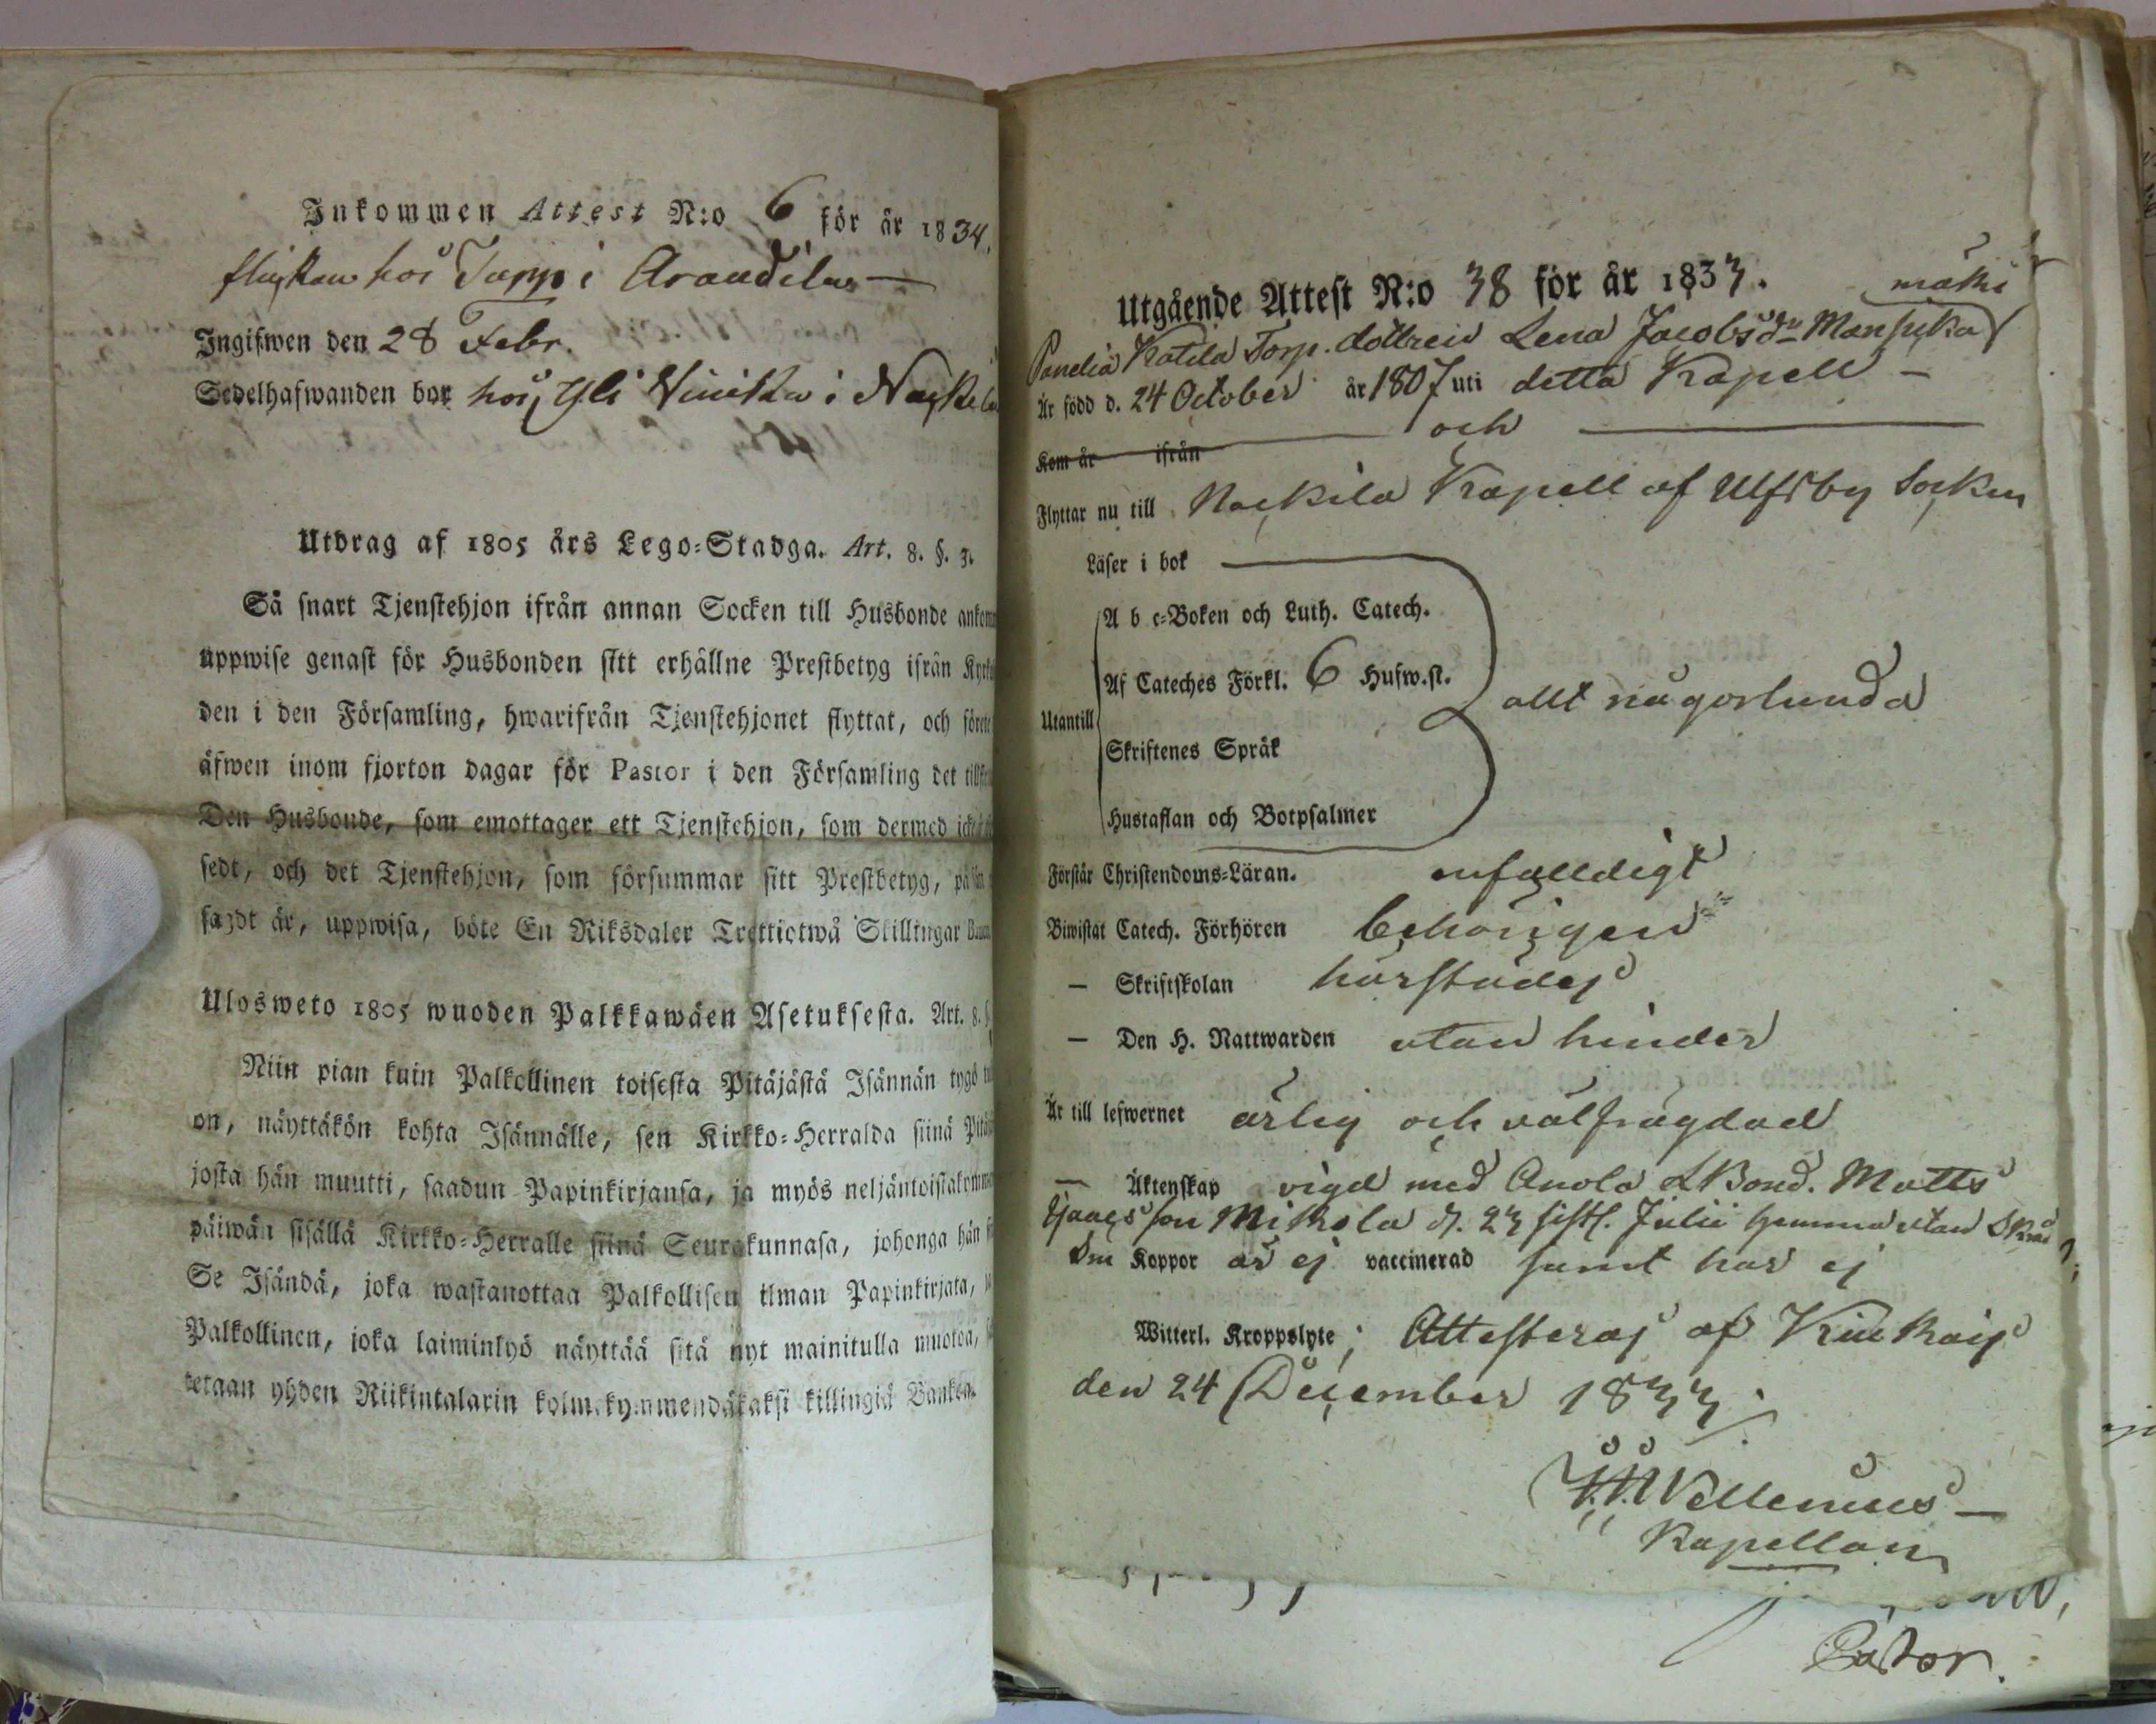 Inkommen Attest N:o 6 för år 1834.
flyttar hos Tuppi Arandila —
Ingifwen den 28 Febr.
Sedelhafwanden bor hos Yli Viniku i
Utdrag af 1805 års Lego-Stadga. Art. 8. §. 3.
Så snart Tjenstehjon ifrån annan Socken till Husbonde
uppwise genast för Husbonden sitt erhållne Prestbetyg ifrån
den i den Församling, hwarifrån Tjenstehjonet flyttat, och
äfwen inom fjorton dagar för Pastor i den Församling det
Den Husbonde, som emottager ett Tjenstehjon, som dermed
sedt, och det Tjenstehjon, som försummar sitt Prestbetyg, på
sagdt är, uppwisa, böte En Riksdaler Trettiotwå Skillingar
Ulosweto 1805 wuoden Palkkawäen Asetuksesta. Art. 8.
Niin pian kuin Palkollinen toisesta Pitäjästä Isännän tygö
on, näyttäkön kohta Isännälle, sen Kirkko-Herralda siinä
josta hän muutti, saadun Papinkirjansa, ja myös
päiwän sisällä Kirkko-Herralle siinä Seurakunnasa, johonga hän
Se Isändä, joka wastanottaa Palkollisen ilman Papinkirjata,
Palkollinen, joka laiminlyö näyttää sitä nyt mainitulla muotoa,
tetaan yhden Riikintalarin kolmekymmendäkaksi killingiä Bankos.
Utgående Attest N:o 38 för år 1833.
mäki
Panelia Katila Torp. dottren Lena Jacobsdr Mansikka
Är född d. 24 October år 1807 uti detta Kapell —
Kom år ifrån och
Flyttar nu till Nackila Kapell af Ulfsby Socken
Läser i bok
A b c-Boken och Luth. Catech.
Af Cateches Förkl. 6 Hufw.st.
Utantill allt någorlunda
Skriftenes Språk
Hustaflan och Botpsalmer
Förstår Christendoms-Läran. enfalldigt
Biwistat Catech. Förhören behörigen
— Skriftskolan härstädes
— Den H. Nattwarden utan hinder
Är till lefwernet ärlig och välfrägdad
— Äktenskap vigd med Anola LBond. Matts
son Mikola d. 23 sistl. Julii hemma utan
Om Koppor är ej vaccinerad samt har ej
Witterl. Kroppslyte; Attesteras af Kiukais
den 24 December 1833.
Wellenius —
Kapellan
Pastor.